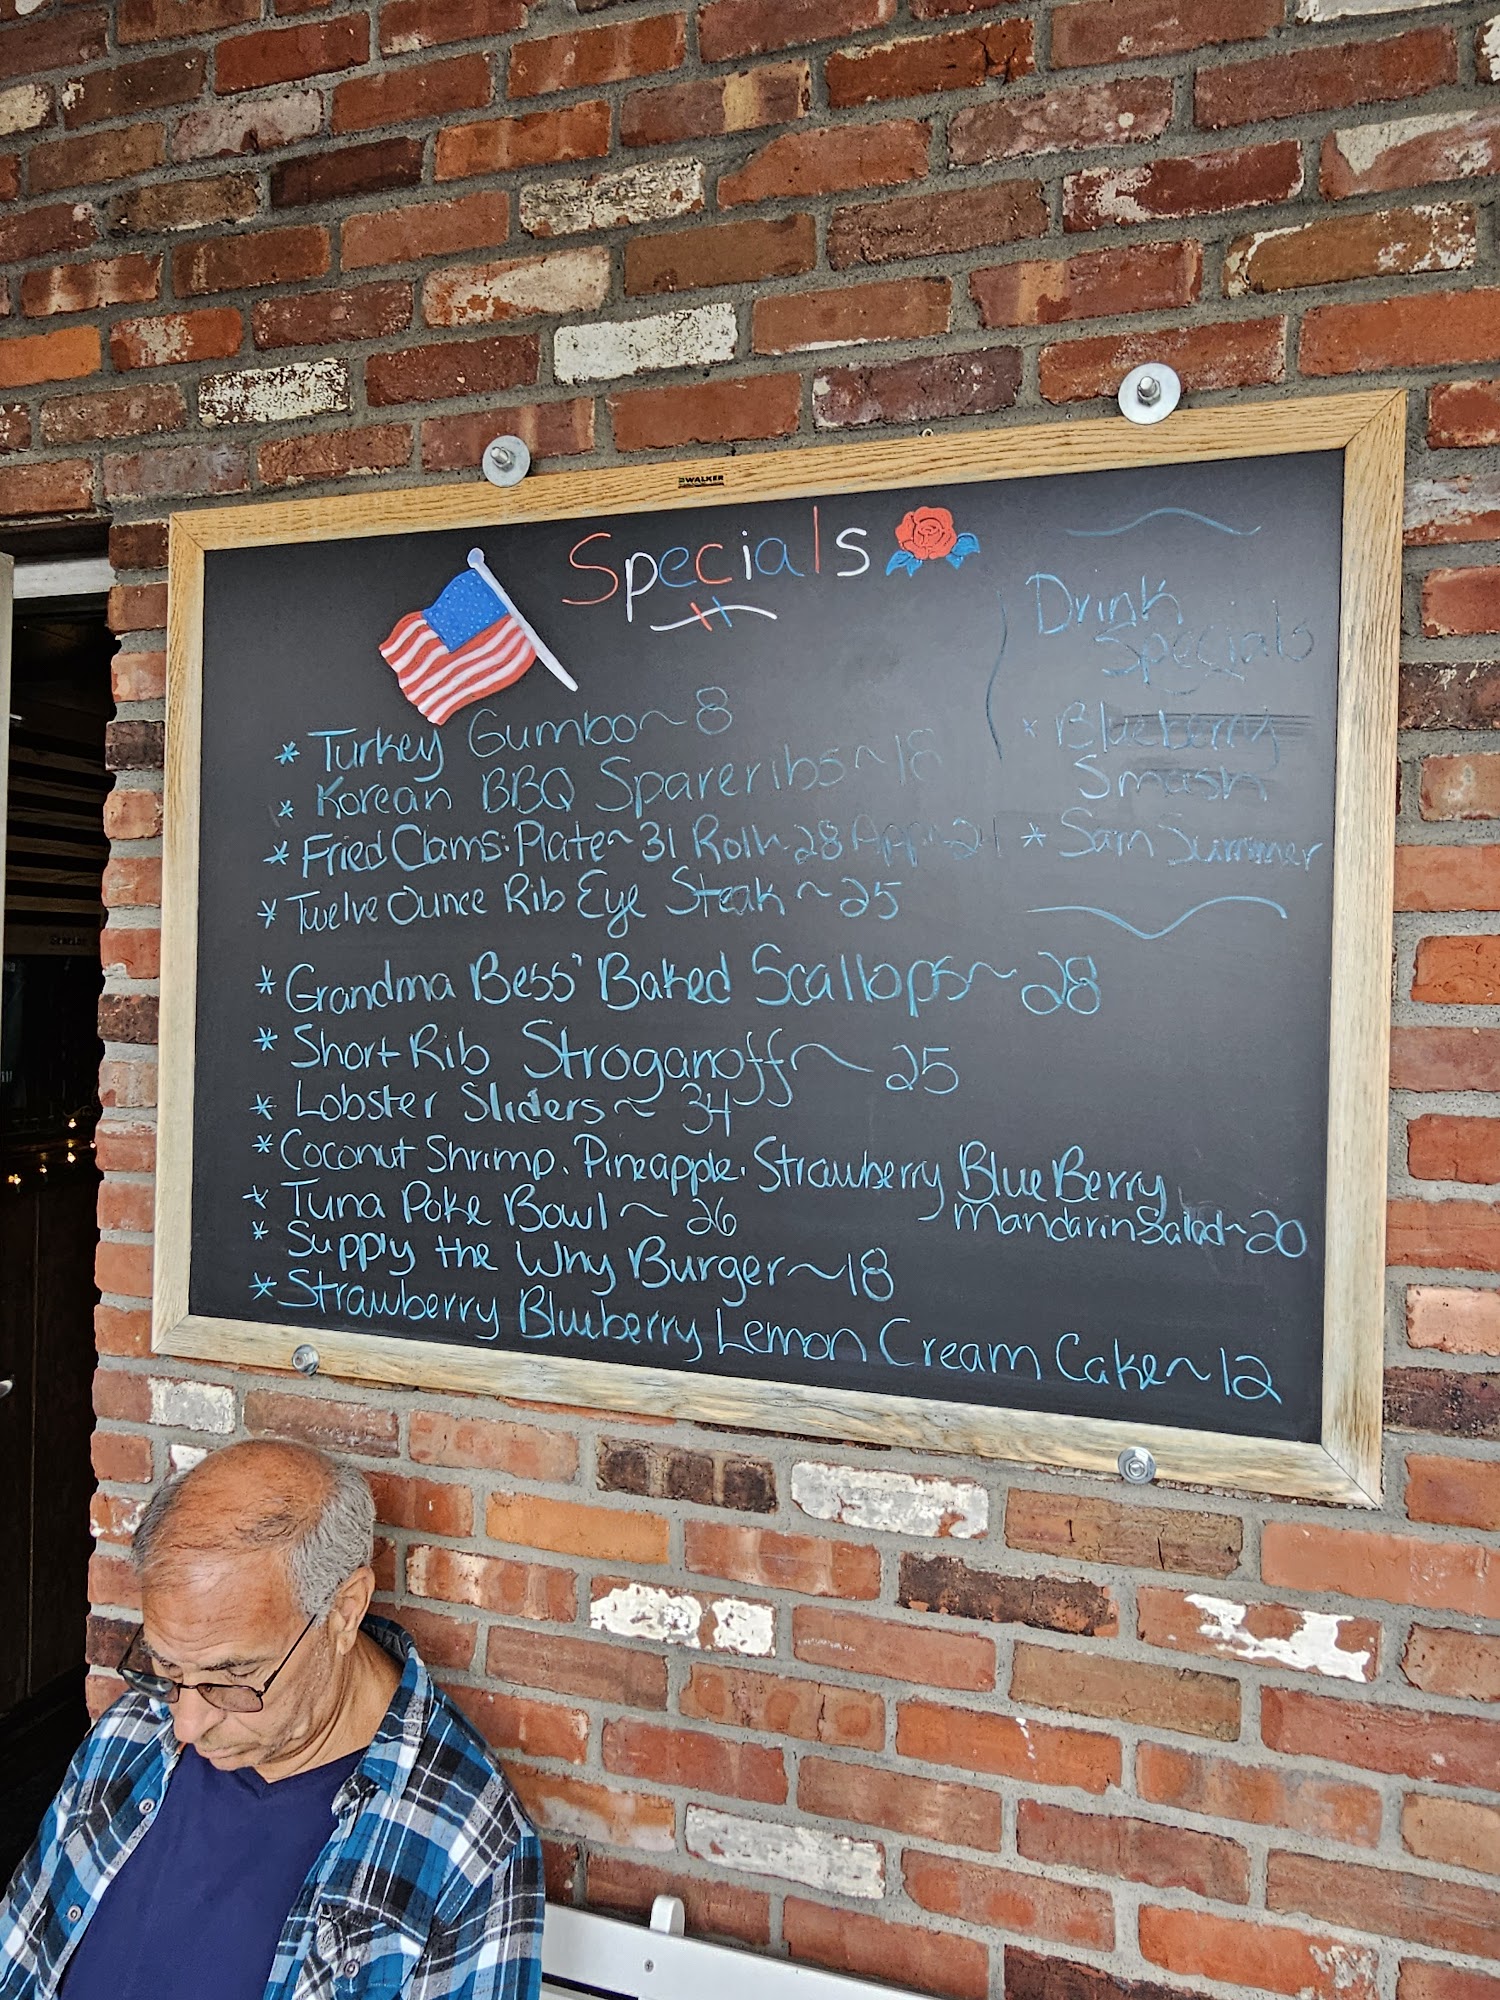 WALKER
Specials
* Turkey Gumbo ~ 8
* Korean BBQ Spareribs ~ 18
* Fried Clams: Plate ~ 31 Roll ~ 28 App ~ 21
* Twelve Ounce Rib Eye Steak ~ 25
* Grandma Bess' Baked Scallops ~ 28
* Short Rib Stroganoff ~ 25
* Lobster Sliders ~ 34
* Coconut Shrimp. Pineapple. Strawberry BlueBerry
Mandarin Salad ~ 20
* Tuna Poke Bowl ~ 26
* Supply the Why Burger ~ 18
* Strawberry Blueberry Lemon Cream Cake ~ 12
Drink
Specials
* Blueberry
Smash
* Sam Summer